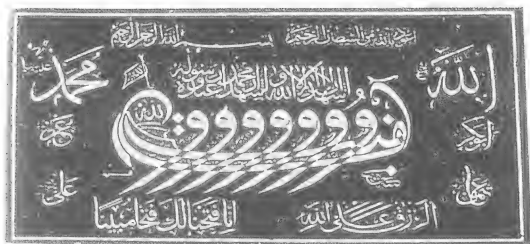 اعوذ بالله من الشيطان الرجيم بسم الله الرحمن الرحيم
الله
محمد
اشهد ان لا اله الا الله واشهد ان محمدا عبده ورسوله
الله
ابوبكر
عمر
عثمان
علی
الرزق علی الله
انا فتحنا لك فتحا مبينا